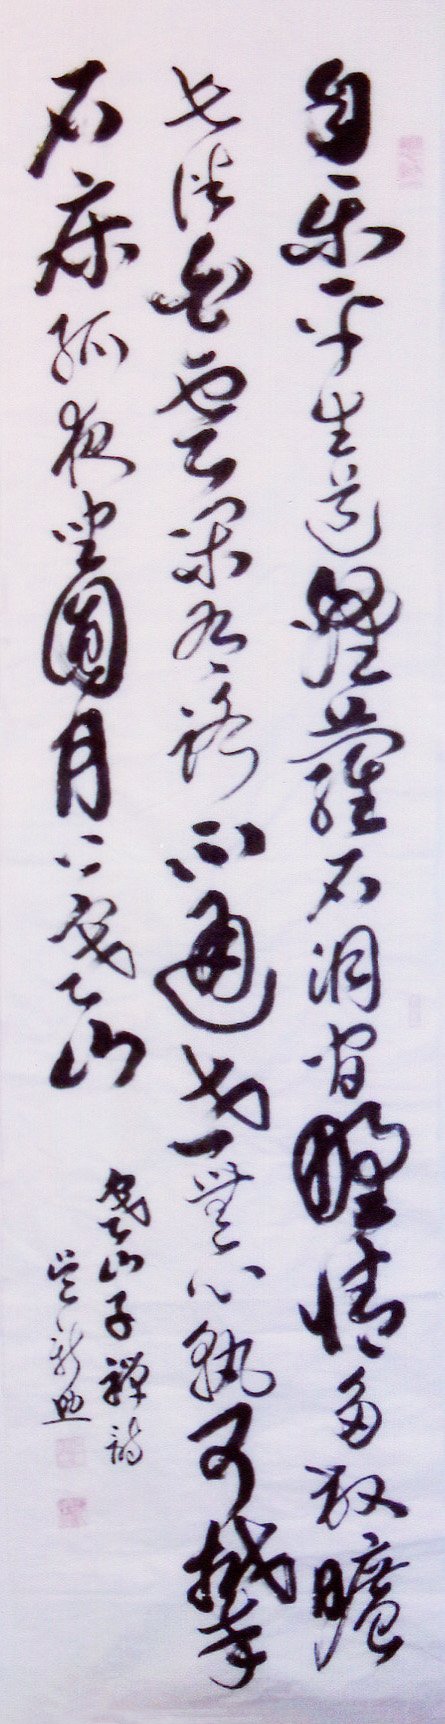 自樂平生道煙蘿石洞間野情多放曠
長伴白雲閑有路不通世無心孰可攀
石床孤夜坐圓月上寒山
寒山子禪詩